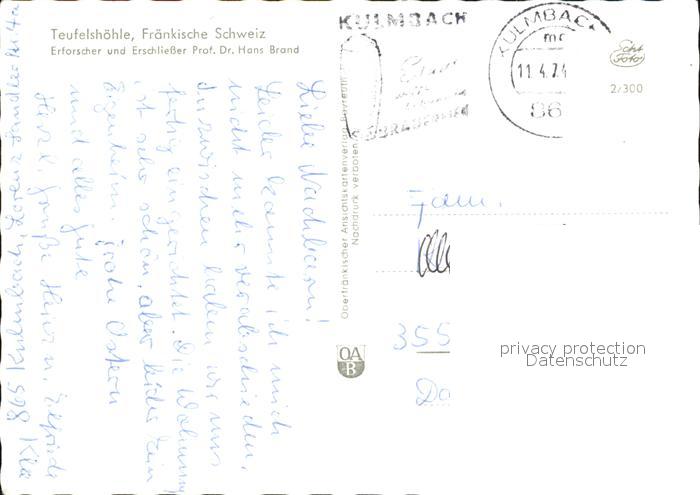 Teufelshöhle, Fränkische Schweiz
Erforscher und Erschließer Prof. Dr. Hans Brand
Liebe Nachbarn!
Leider konnte ich mich
nicht mehr verabschieden.
Inzwischen haben wir uns
fertig eingerichtet. Die Wohnung
ist sehr schön, aber leider kein
Eigenheim. Frohe Ostern
und alles gute
Herzl. Grüße
865 Kulmbach, Lorenz
Oberfränkischer Ansichtskartenverlag Bayreuth
Nachdruck verboten
KULMBACH
KULMBAC
11.4.74
86
2/300
Fam.
355
Da
OA
B
privacy protection
Datenschutz